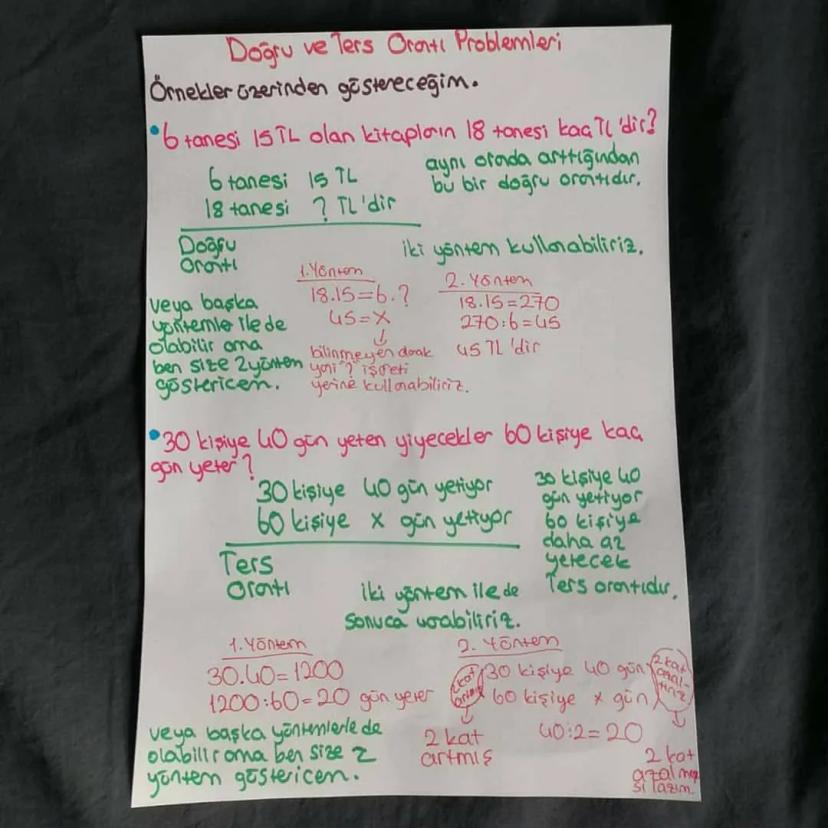 Doğru ve Ters Orantı Problemleri
Örnekler üzerinden göstereceğim.
• 6 tanesi 15 TL olan kitapların 18 tanesi kaç TL'dir?
6 tanesi 15 TL
18 tanesi ? TL'dir
aynı oranda arttığından
bu bir doğru orantıdır.
Doğru
Orantı
iki yöntem kullanabiliriz.
veya başka
yöntemle ile de
olabilir ama
ben size 2 yöntem
göstericem.
1. Yöntem
18.15=6.?
45=x
bilinmeyen olarak
yani ? işareti
yerine kullanabiliriz.
2. Yöntem
18.15=270
270:6=45
45 TL'dir
• 30 kişiye 40 gün yeten yiyecekler 60 kişiye kaç
gün yeter?
30 kişiye 40 gün yetiyor
60 kişiye x gün yetiyor
30 kişiye 40
gün yetiyor
60 kişiye
daha az
yetecek
Ters orantıdır.
Ters
Orantı
iki yöntem ile de
sonuca varabiliriz.
1. Yöntem
30.40=1200
1200:60=20 gün yeter
veya başka yöntemlerle de
olabilir ama ben size 2
yöntem göstericem.
2. Yöntem
2 kat
30 kişiye 40 gün
60 kişiye x gün
2 kat
azal-
tırız
2 kat
artmış
40:2=20
2 kat
azalma
sı lazım.